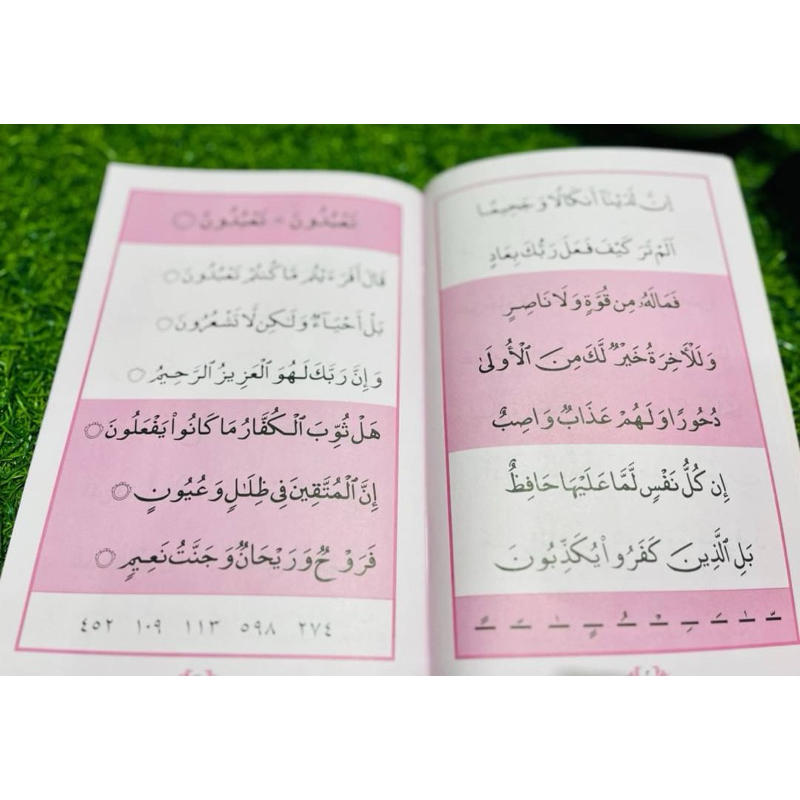 إِنَّ لَدَيْنَآ أَنكَالًا وَجَحِيمًا
أَلَمْ تَرَ كَيْفَ فَعَلَ رَبُّكَ بِعَادٍ
فَمَالَهُۥ مِن قُوَّةٍ وَلَا نَاصِرٍ
وَلَلْأَخِرَةُ خَيْرٌ لَّكَ مِنَ ٱلْأُولَىٰ
دُحُورًا وَلَهُمْ عَذَابٌ وَاصِبٌ
إِن كُلُّ نَفْسٍ لَّمَّا عَلَيْهَا حَافِظٌ
بَلِ ٱلَّذِينَ كَفَرُوا۟ يُكَذِّبُونَ
تَعْبُدُونَ - تَعْبُدُونَ
قَالَ أَفَرَءَيْتُم مَّا كُنتُمْ تَعْبُدُونَ
بَلْ أَحْيَآءٌ وَلَكِن لَّا تَشْعُرُونَ
وَإِنَّ رَبَّكَ لَهُوَ ٱلْعَزِيزُ ٱلرَّحِيمُ
هَلْ ثُوِّبَ ٱلْكُفَّارُ مَا كَانُوا۟ يَفْعَلُونَ
إِنَّ ٱلْمُتَّقِينَ فِى ظِلَٰلٍ وَعُيُونٍ
فَرَوْحٌ وَرَيْحَانٌ وَجَنَّتُ نَعِيمٍ
٢٧٤ ٥٩٨ ١١٣ ١٠٩ ٤٥٢